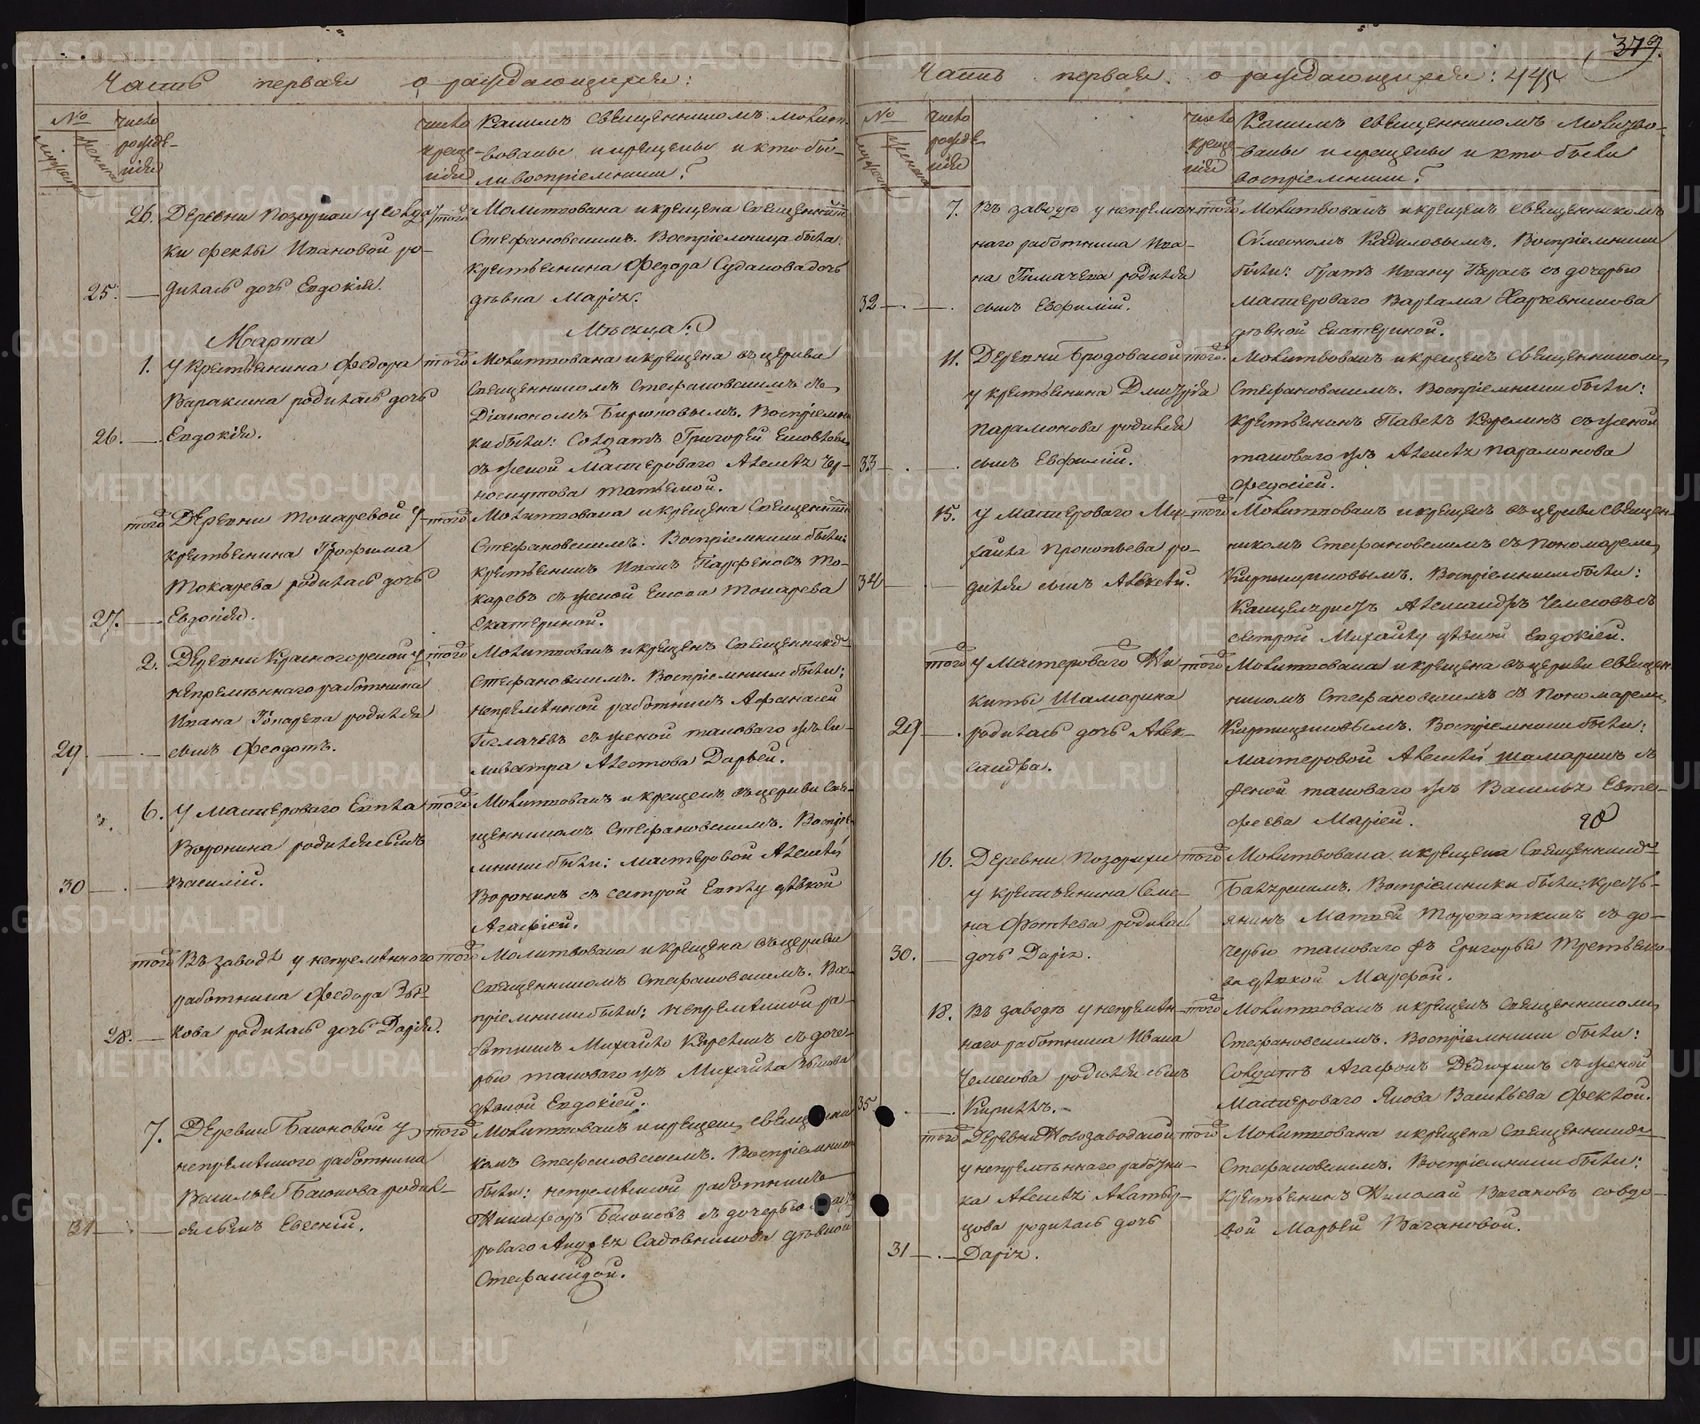 Часть первая о раждающихся:
№
мужеск
женска
число рожде-
нiя
число креще-
нiя
Какимъ священникомъ молит-
вованы и крещены и кто бы-
ли воспрiемники?
26. Деревни Позарихи у солдат-
ки Феклы Ивановой ро-
25. дилась дочь Евдокiя.
того
Молитвована и крещена Священни
Стефановскимъ. Воспрiемница была:
крестьянина Федора Судакова дочь
девка Марiя.
Марта Месяца:
1. У Крестьянина Федора
Варакина родилась дочь
26. Евдокiя.
того
Молитвована и крещена въ церкви
Священникомъ Стефановскимъ съ
Дiакономъ Бирюковымъ. Воспрiемни
ки были: Солдатъ Григорей
съ женой Мастероваго Алексея Чер-
носкутова Татьяной.
того Деревни Токаревой у
крестьянина Трофима
Токарева родилась дочь
27. Евдокiя.
того
Молитвована и крещена Священни
Стефановскимъ. Воспрiемники были:
крестьянинъ Иванъ Парфеновъ То-
каревъ съ женой Токарева
Екатериной.
2. Деревни Красногорской у
непременнаго работника
Ивана родился
29. сынъ Федотъ.
того
Молитвованъ и крещенъ Священнико
Стефановскимъ. Воспрiемники были:
непременной работникъ Афанасей
съ женой таковаго жъ Си-
ливестра Дарьей.
6. У Мастероваго
Воронина родился сынъ
30 Василiй.
того
Молитвованъ и крещенъ въ церкви Свя-
щенникомъ Стефановскимъ. Воспрiе-
мники были: мастеровой Алексей
Воронинъ съ сестрой девкой
Агафiей.
того Въ заводе у непременного
работника Федора Зы-
28. кова родилась дочь Дарiя.
того
Молитвована и крещена въ церкви
Священникомъ Стефановскимъ. Вос-
прiемники были: непременной ра-
ботникъ Михайло Карелинъ съ доче-
рью таковаго жъ Михайла Зыкова
девкой Евдокiей.
7. Деревни Баюновой у
непременного работника
Василья Баюнова родил-
31 ся сынъ Евгенiй.
того
Молитвованъ и крещенъ священни
комъ Стефановскимъ. Воспрiемники
были: непременной работникъ
Никифоръ Баюновъ съ дочерью масте
роваго Андрея Садовникова девкой
Стефанидой.
379.
Часть первая о раждающихся: 445
№
мужеск
женска
число рожде
нiя
число креще-
нiя
Какимъ священникомъ молитво-
ваны и крещены и кто были
воспрiемники?
7. Въ заводе у непремен-
наго работника Ива-
на Толмачева родился
32 сынъ Евфимiй.
того
Молитвованъ и крещенъ священникомъ
Симеономъ Кадиловымъ. Воспрiемники
были: братъ Ивану Тарасъ съ дочерью
мастероваго Варлама Харченикова
девкой Екатериной.
11. Деревни Бродовской
у крестьянина Дмитрiя
Парамонова родился
33 сынъ Евфимiй.
того
Молитвованъ и крещенъ священникомъ
Стефановскимъ. Воспрiемники были:
крестьянинъ Павелъ Карелинъ съ женой
таковаго жъ Алексея Парамонова
Федосiей.
15. У Мастероваго Ми-
хайла Прокопьева ро-
34 дился сынъ Алексей.
того
Молитвованъ и крещенъ въ церкви священ-
никомъ Стефановскимъ съ пономаремъ
Кирпищиковымъ. Воспрiемники были:
Канцеляристъ Александръ Чемесовъ съ
сестрой Михайлу девкой Евдокiей.
того У Мастероваго Ни
киты Шамарина
29 родилась дочь Алек-
сандра.
того
Молитвована и крещена въ церкви священ
никомъ Стефановскимъ съ пономаремъ
Кирпищиковымъ. Воспрiемники были:
Мастеровой Алексей Шамаринъ съ
женой таковаго жъ Василья Евти-
феева Марiей.
16. Деревни Позарихи
у крестьянина Семе-
на Фотеева родилась
30. дочь Дарiя.
того
Молитвована и крещена Священнико
Бабкинымъ. Воспрiемники были: кресть-
янинъ Матвей Торопаткинъ съ до-
черью таковаго жъ Григорья Третьяко-
ва девкой Марфой.
18. Въ заводе у непремен
наго работника Ивана
Чемесова родился сынъ
35 Кириллъ.
того
Молитвованъ и крещенъ Священникомъ
Стефановскимъ. Воспрiемники были:
Солдатъ Агафонъ Дедюринъ съ женой
Мастероваго Якова Васильева Феклой.
того Деревни Новозаводской
у непременнаго работни-
ка Алексея
родилась дочь
31 Дарiя.
того
Молитвована и крещена Священнико
Стефановскимъ. Воспрiемники были:
крестьянинъ Николай Вагановъ со вдо-
вой Марьей Вагановой.
METRIKI.GASO-URAL.RU